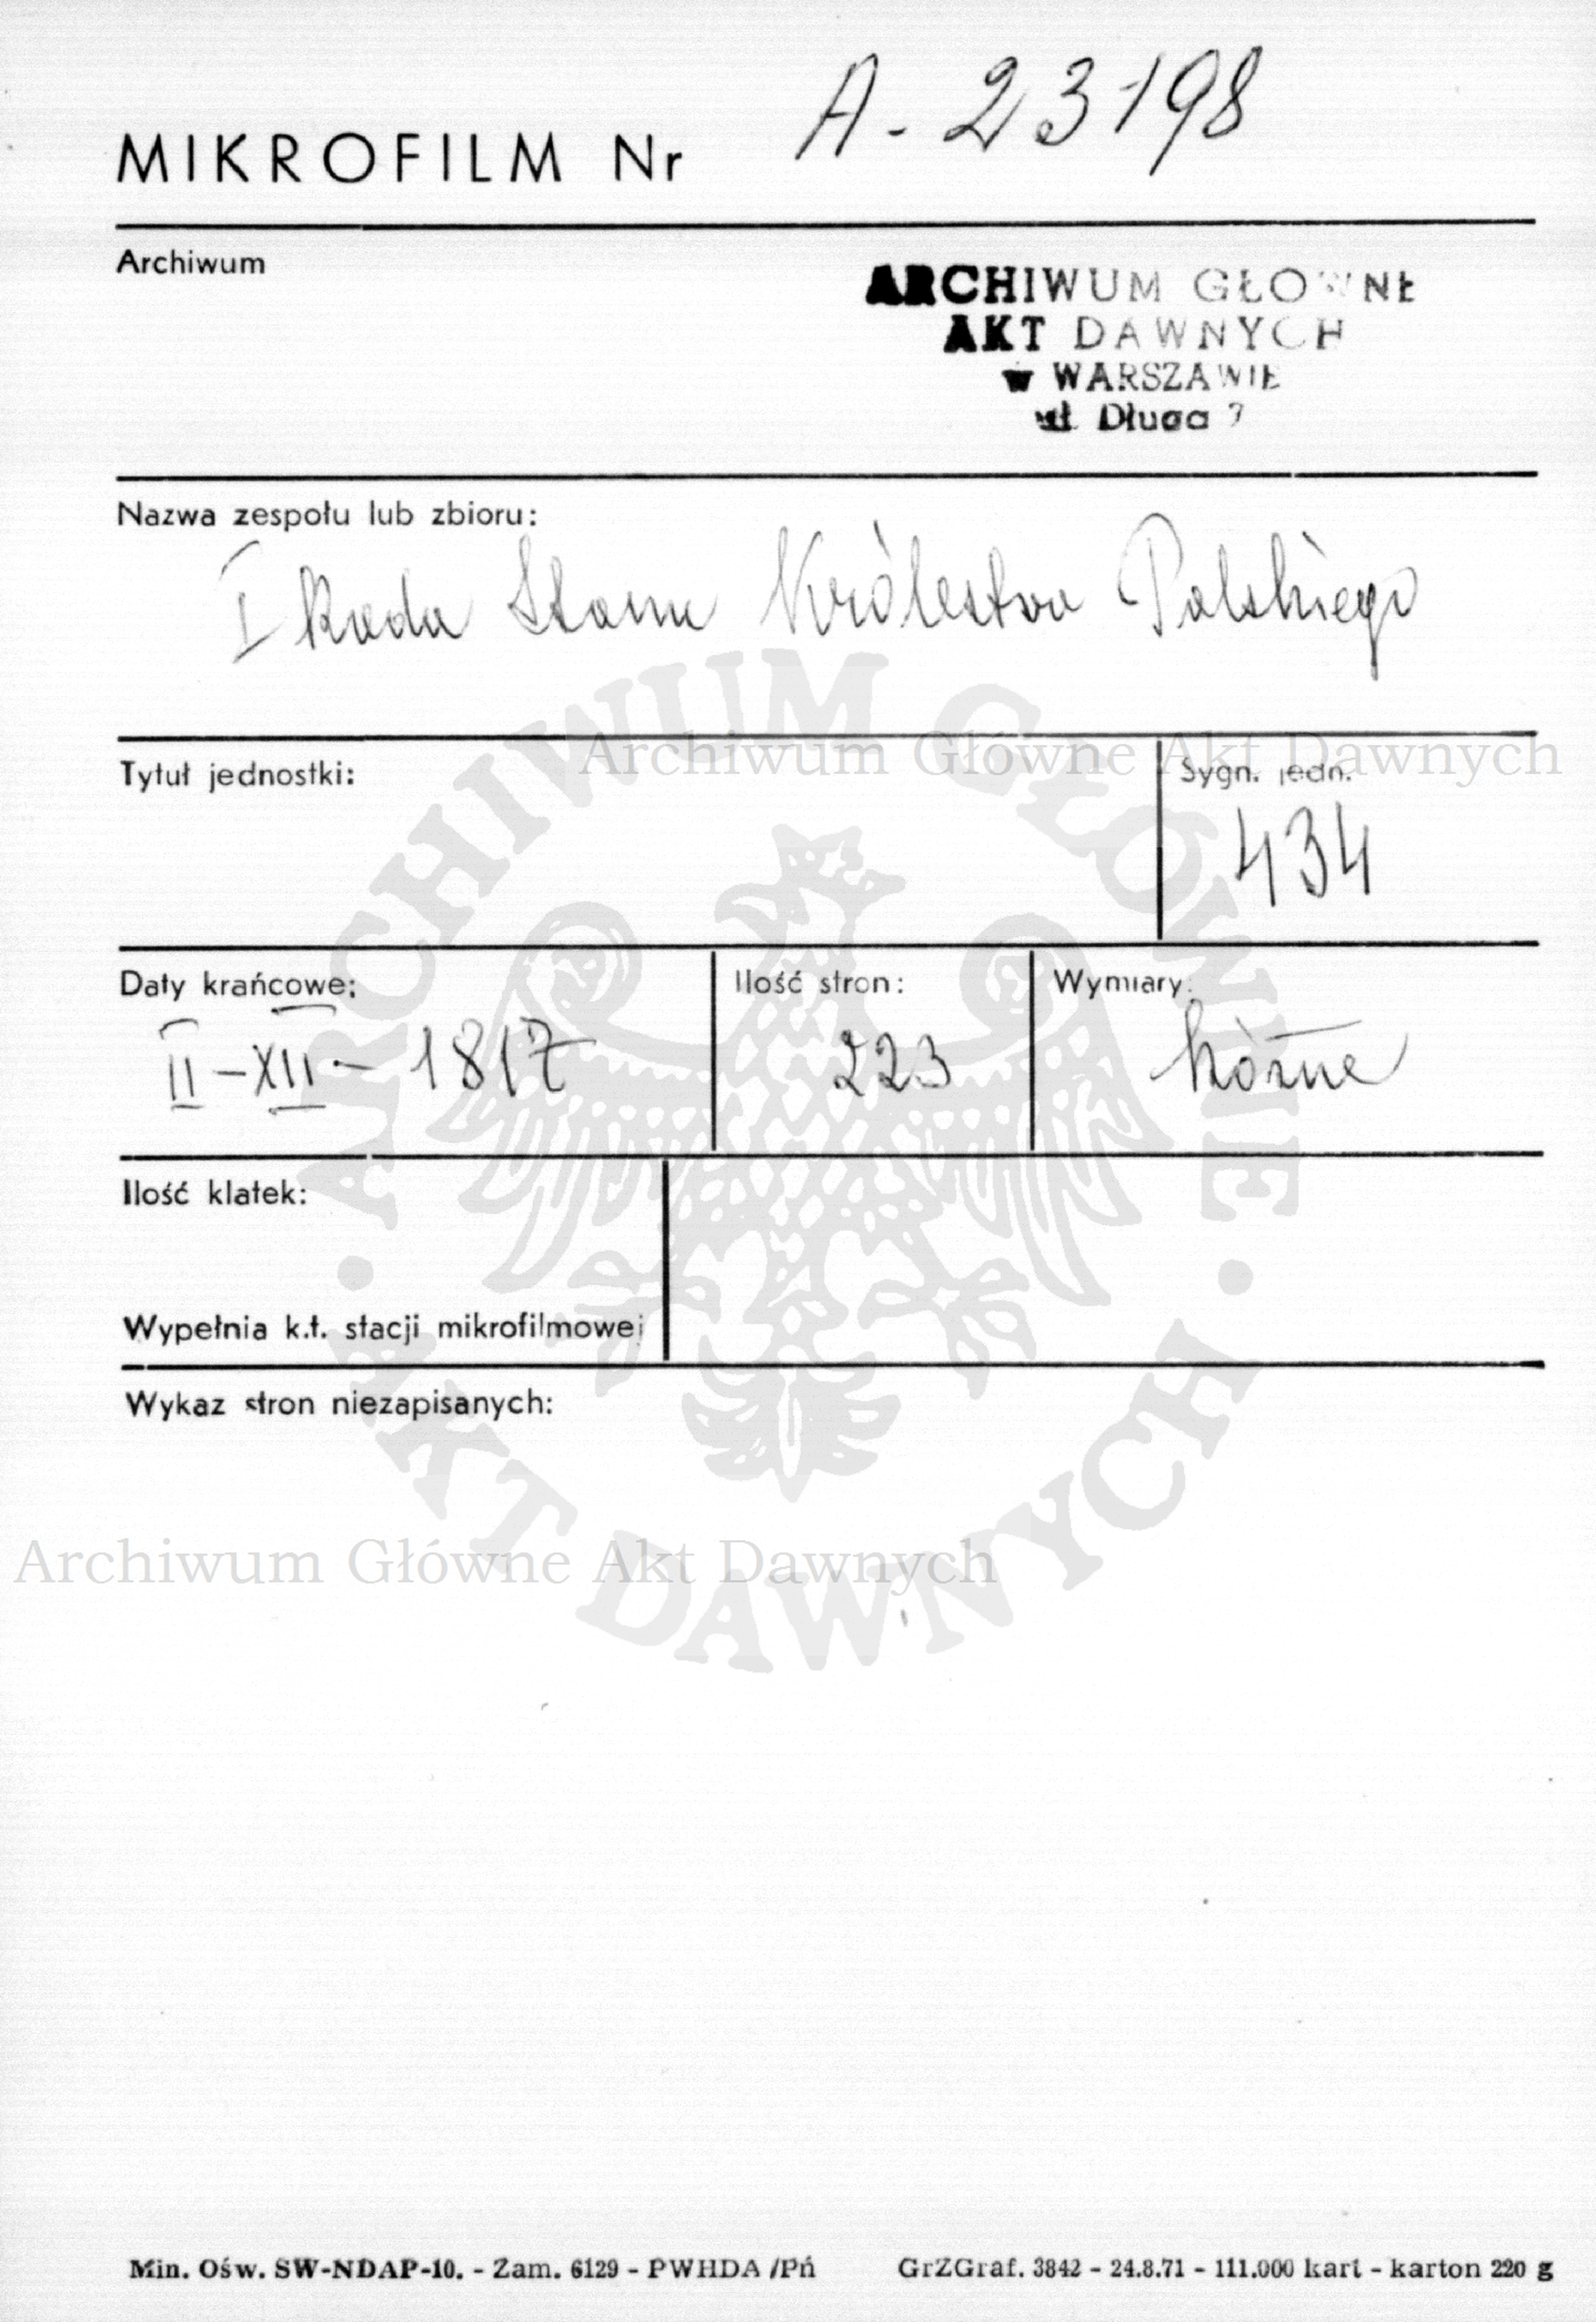 MIKROFILM Nr A-23198
Archiwum
ARCHIWUM GŁÓWNE
AKT DAWNYCH
w WARSZAWIE
ul Długa 7
Nazwa zespołu lub zbioru:
I Rada Stanu Królestwa Polskiego
Tytuł jednostki:
Sygn. jedn.
434
Daty krańcowe:
II-XII-1817
Ilość stron:
223
Wymiary:
różne
Ilość klatek:
Wypełnia k.t. stacji mikrofilmowej
Wykaz stron niezapisanych:
Archiwum Główne Akt Dawnych
Archiwum Główne Akt Dawnych
ARCHIWUM GŁÓWNE
AKT DAWNYCH
Min. Ośw. SW-NDAP-10. - Zam. 6129 - PWHDA /Pń GrZGraf. 3842 - 24.8.71 - 111.000 kart - karton 220 g